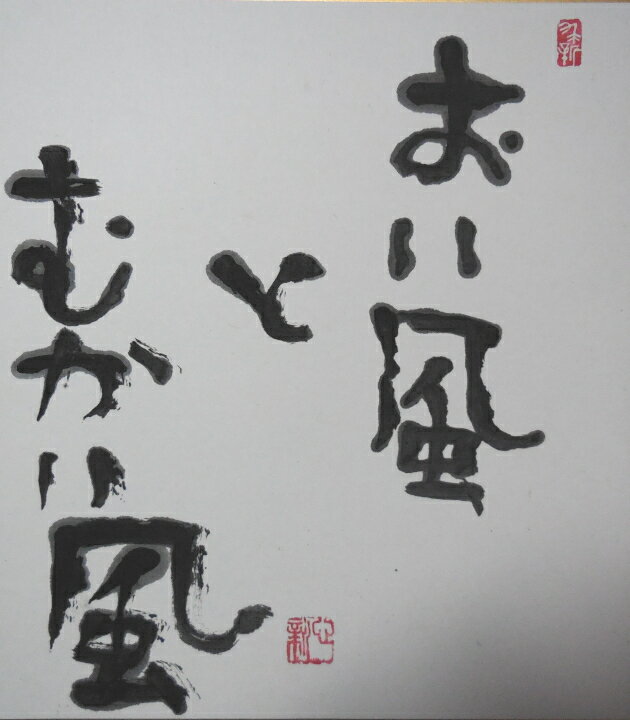 おい風
と
むかい風